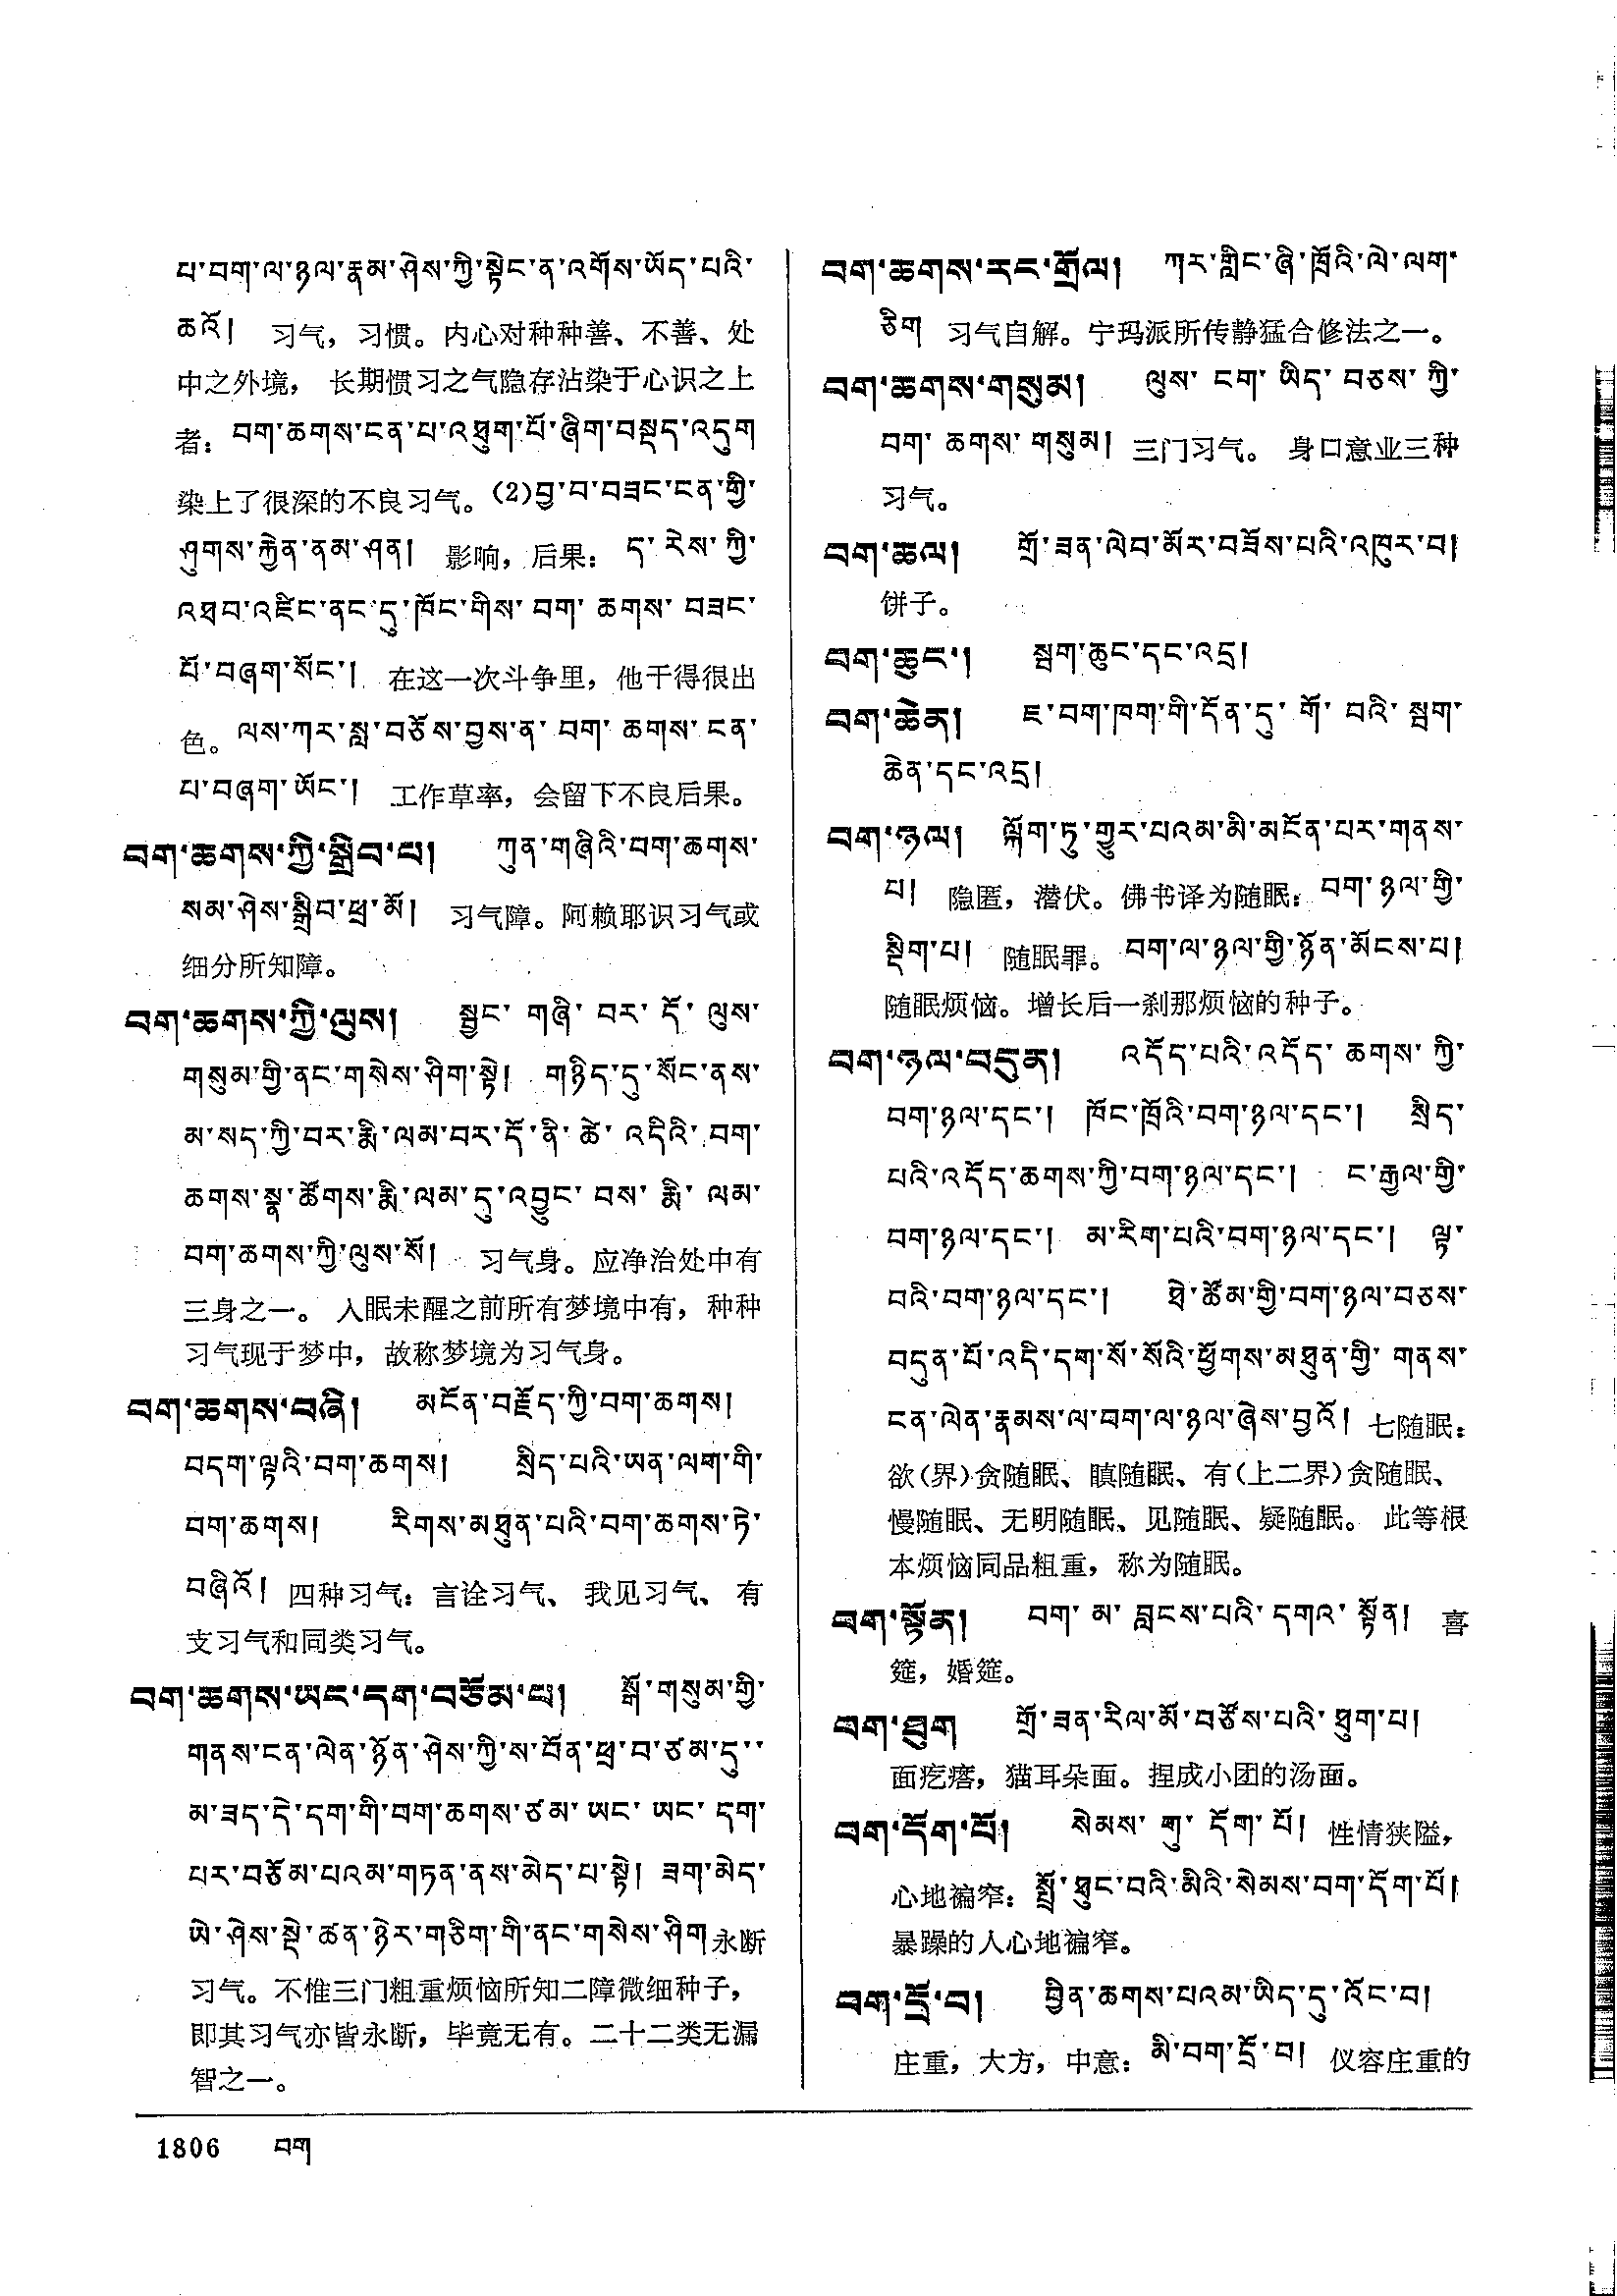 པ་བག་ལ་ཉལ་རྣམ་ཤེས་ཀྱི་སྟེང་ན་འགོས་ཡོད་པའི་
ཆའོ། 习气，习惯。内心对种种善、不善、处
中之外境， 长期惯习之气隐存沾染于心识之上
者：བག་ཆགས་ངན་པ་འཐུག་པོ་ཞིག་བསྡད་འདུག
染上了很深的不良习气。(2)བྱ་བ་བཟང་ངན་གྱི་
ཤུགས་རྐྱེན་ནམ་ཤན། 影响，后果：ད་རེས་ཀྱི་
འཐབ་འཛིང་ནང་དུ་ཁོང་གིས་བག་ཆགས་བཟང་
པོ་བཞག་སོང་། 在这一次斗争里，他干得很出
色。ལས་ཀར་སླ་བཅོས་བྱས་ན་བག་ཆགས་ངན་
པ་བཞག་ཡོང་། 工作草率，会留下不良后果。
བག་ཆགས་ཀྱི་སྒྲིབ་པ། ཀུན་གཞིའི་བག་ཆགས་
སམ་ཤེས་སྒྲིབ་ཕྲ་མོ། 习气障。阿赖耶识习气或
细分所知障。
བག་ཆགས་ཀྱི་ལུས། སྦྱང་གཞི་བར་དོ་ལུས་
གསུམ་གྱི་ནང་གསེས་ཤིག་སྟེ། གཉིད་དུ་སོང་ནས་
མ་སད་ཀྱི་བར་རྨི་ལམ་བར་དོ་ནི་ཚེ་འདིའི་བག་
ཆགས་སྣ་ཚོགས་རྨི་ལམ་དུ་འབྱུང་བས་རྨི་ལམ་
བག་ཆགས་ཀྱི་ལུས་སོ། 习气身。应净治处中有
三身之一。 入眠未醒之前所有梦境中有，种种
习气现于梦中，故称梦境为习气身。
བག་ཆགས་བཞི། མངོན་བརྗོད་ཀྱི་བག་ཆགས།
བདག་ལྟའི་བག་ཆགས། སྲིད་པའི་ཡན་ལག་གི་
བག་ཆགས། རིགས་མཐུན་པའི་བག་ཆགས་ཏེ་
བཞིའོ། 四种习气：言诠习气、我见习气、有
支习气和同类习气。
བག་ཆགས་ཡང་དག་བཅོམ་པ། སྒོ་གསུམ་གྱི་
གནས་ངན་ལེན་ཉོན་ཤེས་ཀྱི་ས་བོན་ཕྲ་བ་ཙམ་དུ་
མ་ཟད་དེ་དག་གི་བག་ཆགས་ཙམ་ཡང་ཡང་དག་
པར་བཅོམ་པའམ་གཏན་ནས་མེད་པ་སྟེ། ཟག་མེད་
ཡེ་ཤེས་སྡེ་ཚན་ཉེར་གཅིག་གི་ནང་གསེས་ཤིག永断
习气。不惟三门粗重烦恼所知二障微细种子，
即其习气亦皆永断，毕竟无有。二十二类无漏
智之一。
བག་ཆགས་རང་གྲོལ། ཀར་གླིང་ཞི་ཁྲོའི་ལེ་ལག་
ཅིག 习气自解。宁玛派所传静猛合修法之一。
བག་ཆགས་གསུམ། ལུས་ངག་ཡིད་བཅས་ཀྱི་
བག་ཆགས་གསུམ། 三门习气。 身口意业三种
习气。
བག་ཆལ། གྲོ་ཟན་ལེབ་མོར་བཟོས་པའི་འཁུར་བ།
饼子。
བག་ཆུང་། སྦག་ཆུང་དང་འདྲ།
བག་ཆེན། ཇ་བག་ཁག་གི་དོན་དུ་གོ་བའི་སྦག་
ཆེན་དང་འདྲ།
བག་ཉལ། ལྐོག་ཏུ་གྱུར་པའམ་མི་མངོན་པར་གནས་
པ། 隐匿，潜伏。佛书译为随眠：བག་ཉལ་གྱི་
སྡིག་པ། 随眠罪。བག་ལ་ཉལ་གྱི་ཉོན་མོངས་པ།
随眠烦恼。增长后一刹那烦恼的种子。
བག་ཉལ་བདུན། འདོད་པའི་འདོད་ཆགས་ཀྱི་
བག་ཉལ་དང་། ཁོང་ཁྲོའི་བག་ཉལ་དང་། སྲིད་
པའི་འདོད་ཆགས་ཀྱི་བག་ཉལ་དང་། ང་རྒྱལ་གྱི་
བག་ཉལ་དང་། མ་རིག་པའི་བག་ཉལ་དང་། ལྟ་
བའི་བག་ཉལ་དང་། ཐེ་ཚོམ་གྱི་བག་ཉལ་བཅས་
བདུན་པོ་འདི་དག་སོ་སོའི་ཕྱོགས་མཐུན་གྱི་གནས་
ངན་ལེན་རྣམས་ལ་བག་ལ་ཉལ་ཞེས་བྱའོ། 七随眠：
欲(界)贪随眠、瞋随眠、有(上二界)贪随眠、
慢随眠、无明随眠、见随眠、疑随眠。 此等根
本烦恼同品粗重，称为随眠。
བག་སྟོན། བག་མ་བླངས་པའི་དགའ་སྟོན། 喜
筵，婚筵。
བག་ཐུག གྲོ་ཟན་རིལ་མོ་བཅོས་པའི་ཐུག་པ།
面疙瘩，猫耳朵面。捏成小团的汤面。
བག་དོག་པོ། སེམས་གུ་དོག་པོ། 性情狭隘，
心地褊窄：སྤྲོ་ཐུང་བའི་མིའི་སེམས་བག་དོག་པོ།
暴躁的人心地褊窄。
བག་དྲོ་བ། བྱིན་ཆགས་པའམ་ཡིད་དུ་འོང་བ།
庄重，大方，中意：མི་བག་དྲོ་བ། 仪容庄重的
1806 བག